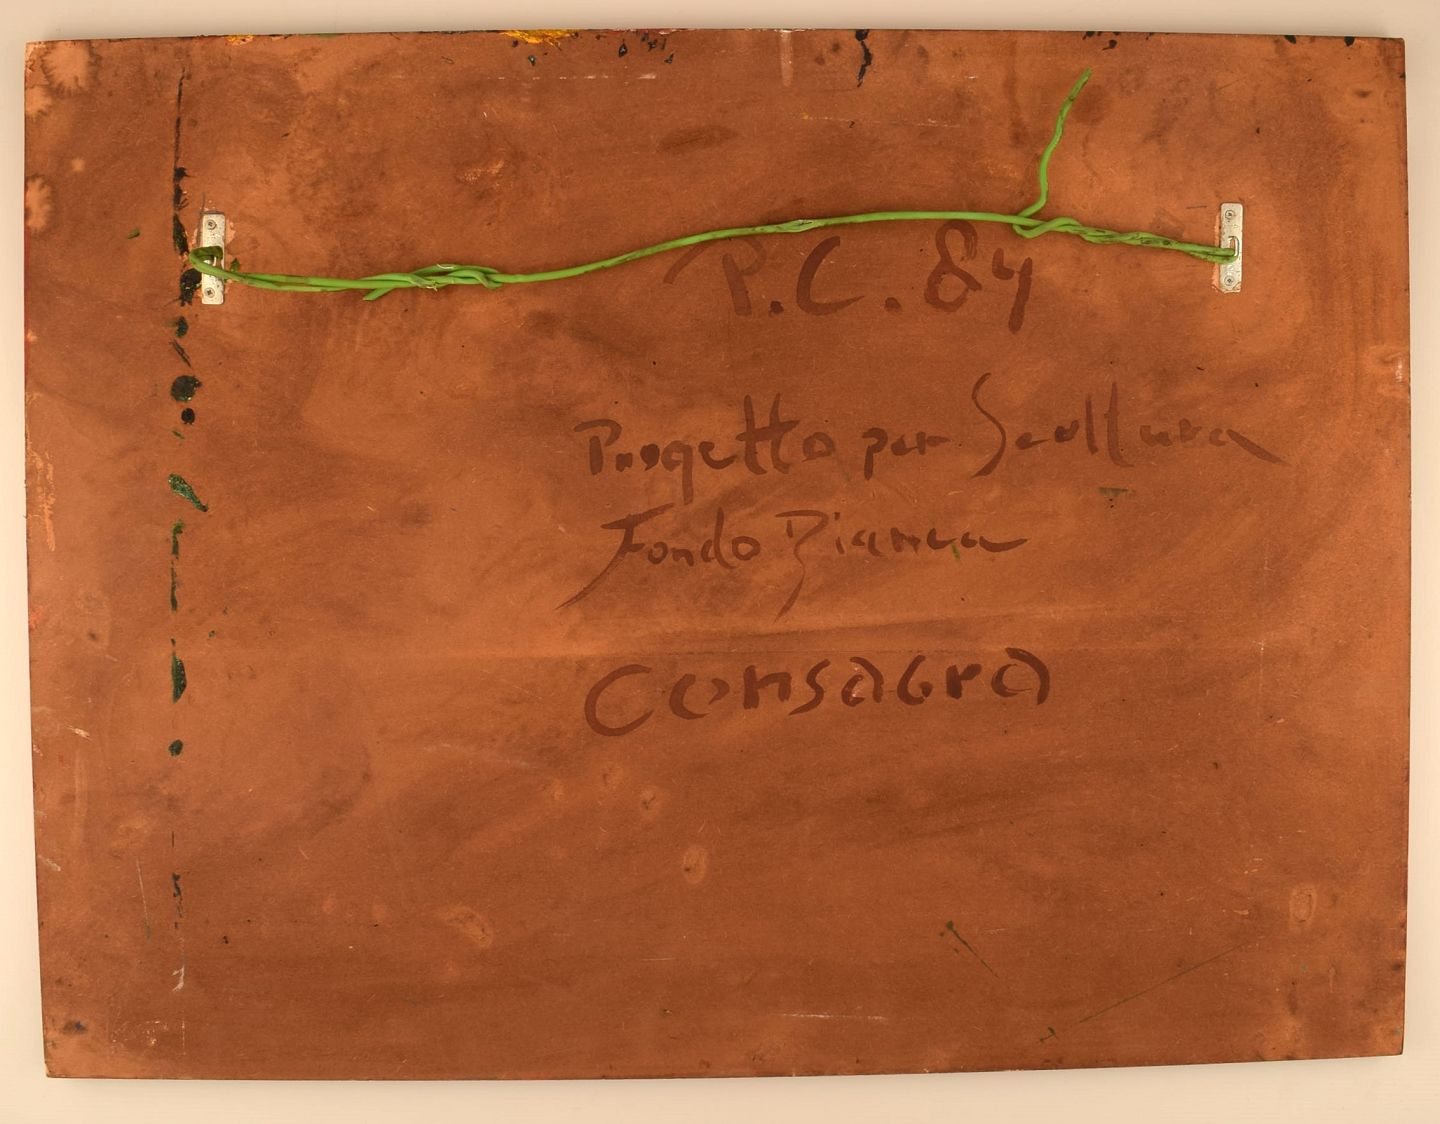 P.C. 84
Progetto per Scultura
Fondo Bianca
Consagra